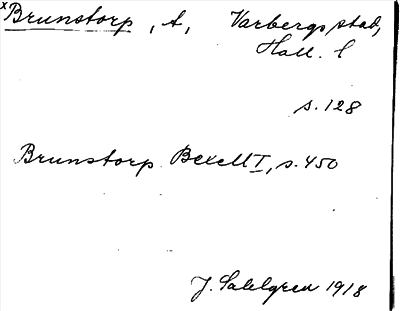 x Brunstorp, t, Varbergs stad,
Hall. l
s. 128
Brunstorp Bexell I, s. 450
J. Sahlgren 1918